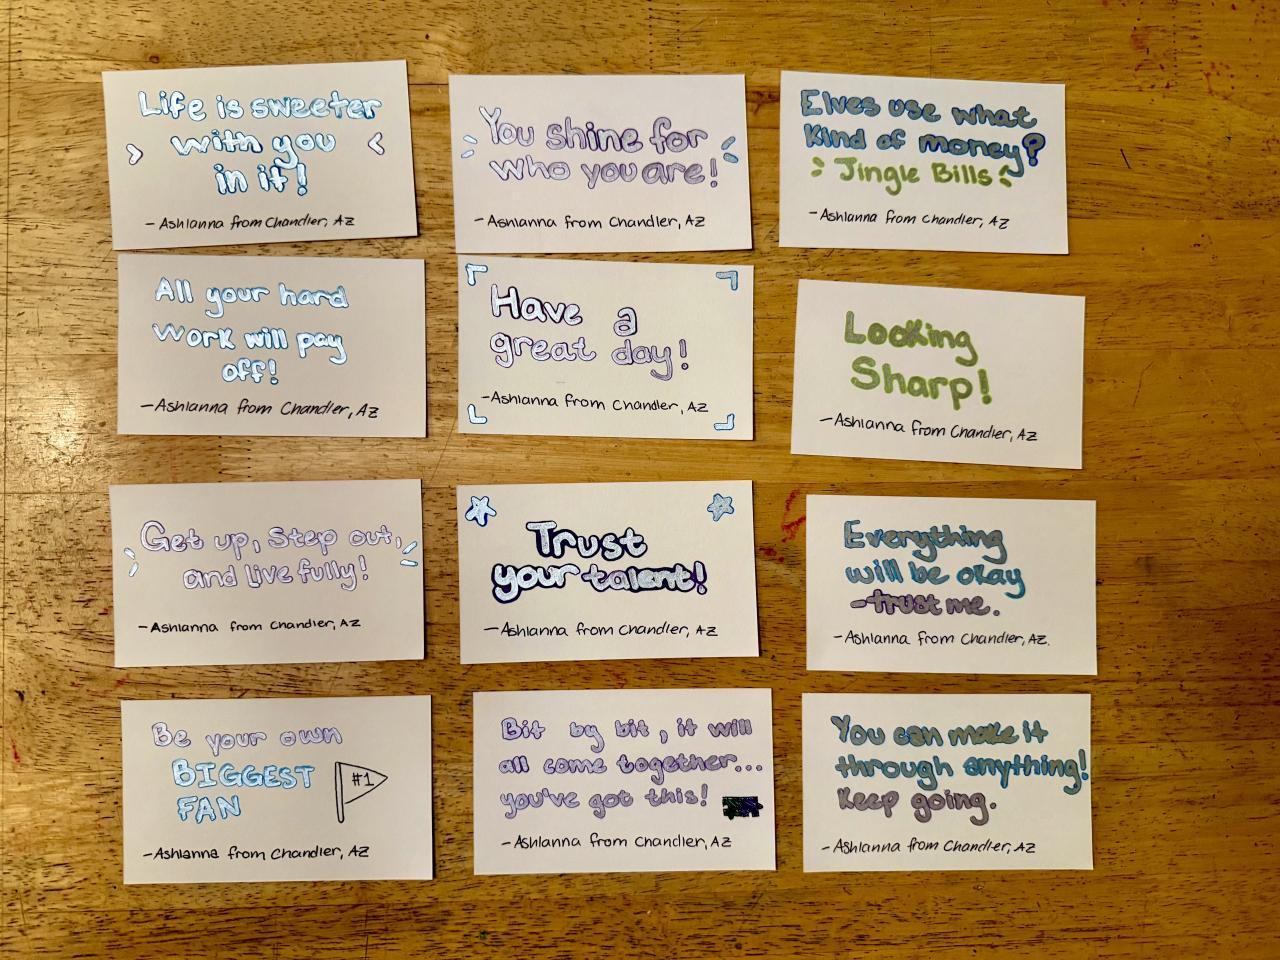 Life is sweeter
with you
in it!
-Ashlanna from Chandler, AZ
You shine for
who you are!
-Ashlanna from Chandler, AZ
Elves use what
kind of money?
Jingle Bills
-Ashlanna from Chandler, AZ
All your hard
work will pay
off!
-Ashlanna from Chandler, AZ
Have a
great day!
-Ashlanna from Chandler, AZ
Looking
Sharp!
-Ashlanna from Chandler, AZ
Get up, Step out,
and live fully!
-Ashlanna from Chandler, AZ
Trust
your talent!
-Ashlanna from Chandler, AZ
Everything
will be okay
-trust me.
-Ashlanna from Chandler, AZ.
Be your own
BIGGEST
FAN
#1
-Ashlanna from Chandler, AZ
Bit by bit, it will
all come together...
you've got this!
-Ashlanna from Chandler, AZ
You can make it
through anything!
Keep going.
-Ashlanna from Chandler, AZ